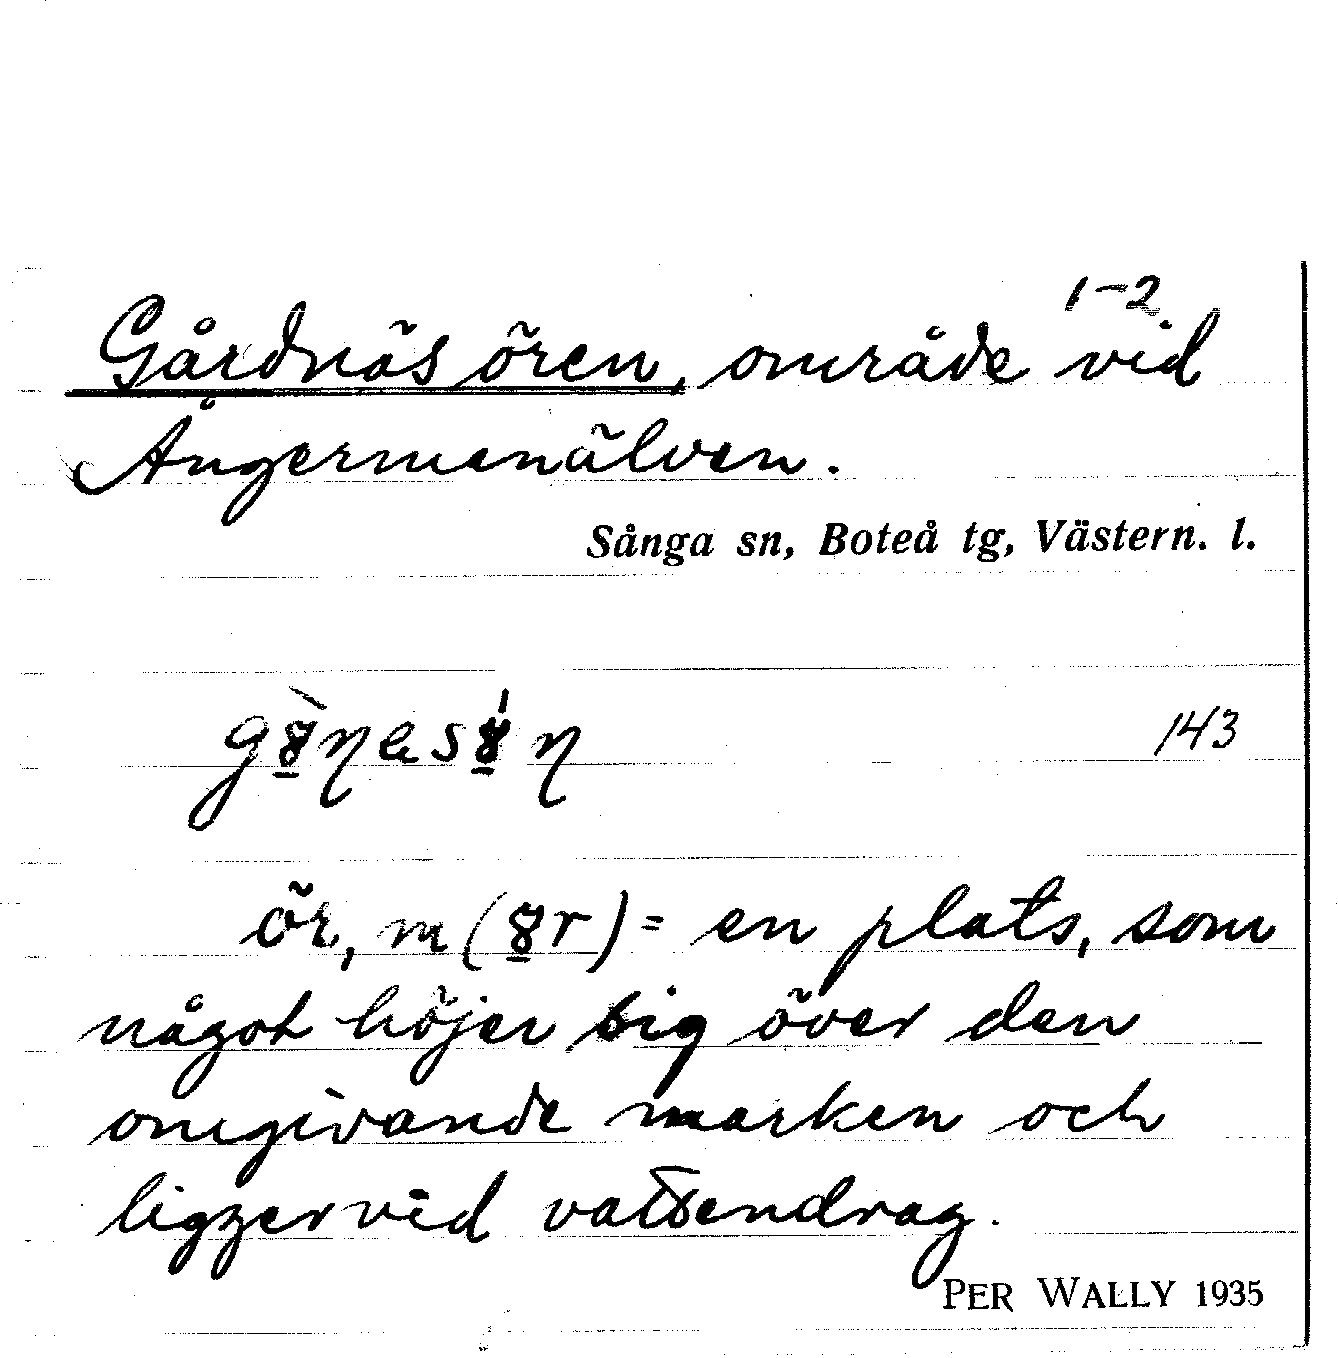 1-2
Gårdnäsören, område vid
Ångermanälven.
Sånga sn, Boteå tg, Västern. l.
143
ör, m ( r) = en plats, som
något höjer sig över den
omgivande marken och
ligger vid vattendrag.
PER WALLY 1935